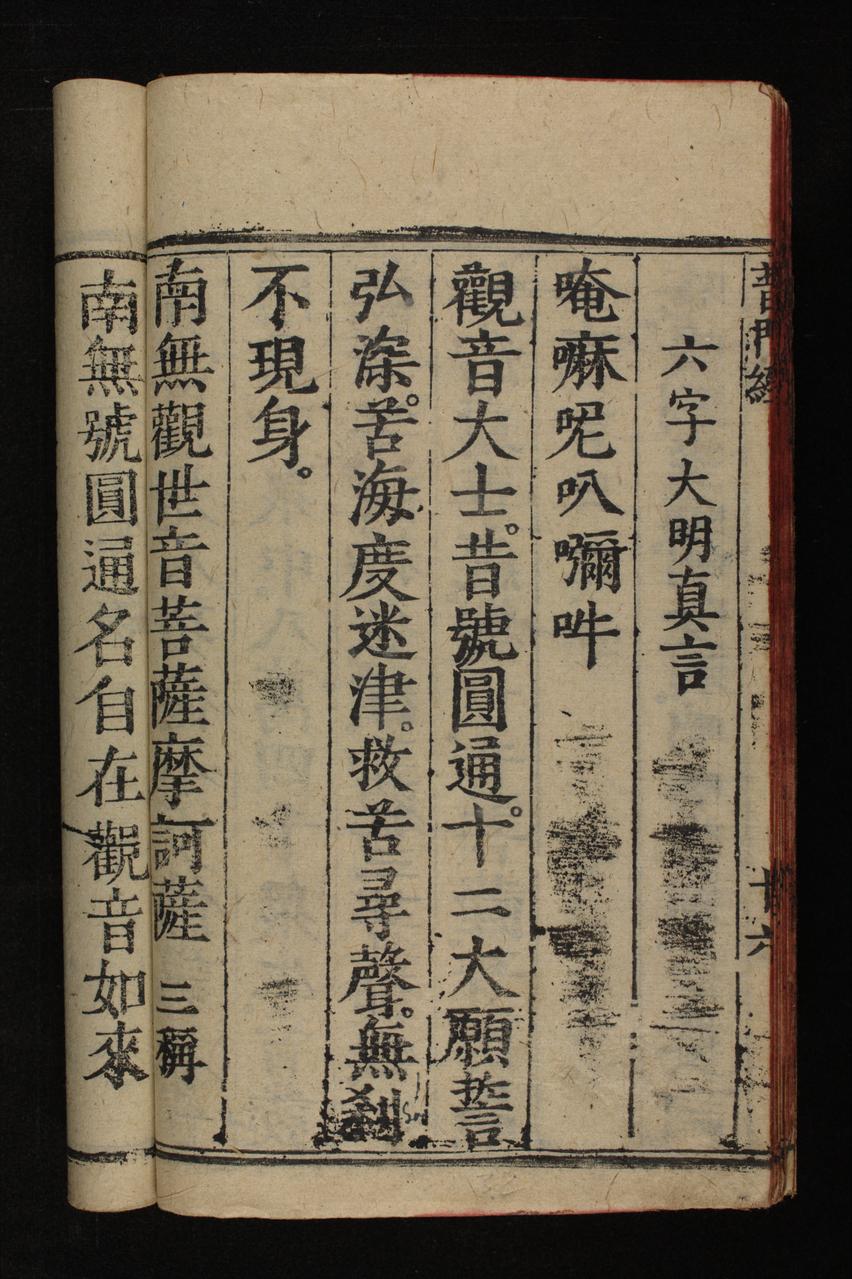 普門經 十六
六字大明真言
唵嘛呢叭嚩吽
觀音大士。昔號圓通。十二大願誓
弘深。苦海度迷津。救苦尋聲。無刹
不現身。
南無觀世音菩薩摩訶薩 三稱
南無號圓通名自在觀音如來